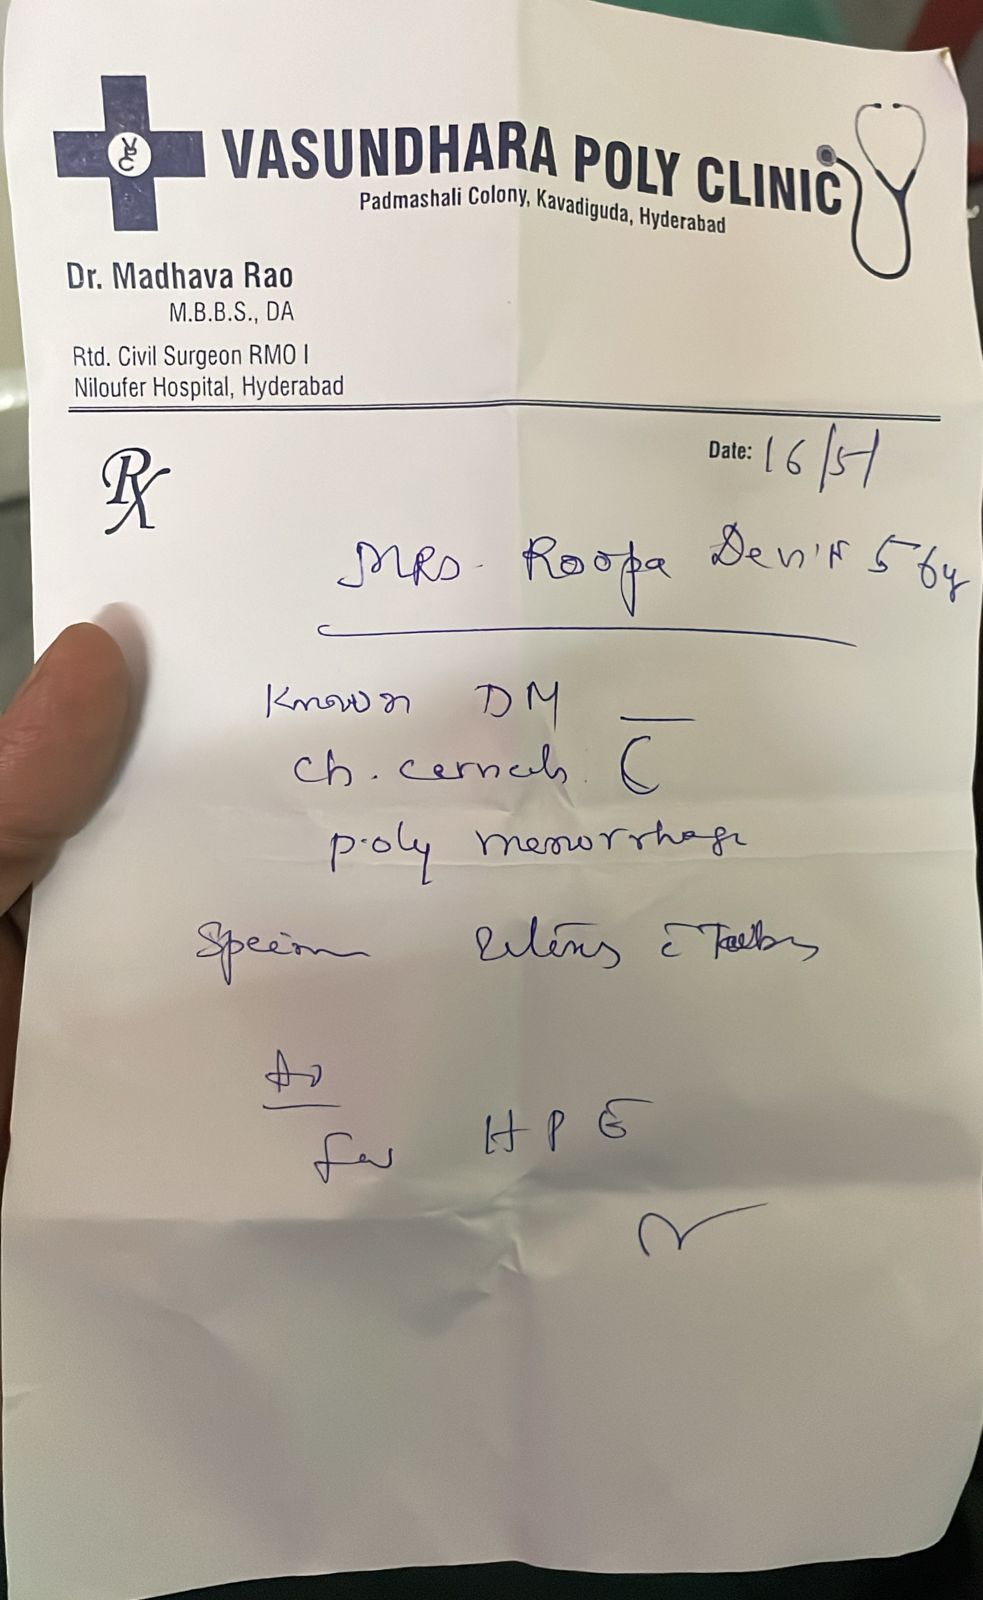 VPC
VASUNDHARA POLY CLINIC
Padmashali Colony, Kavadiguda, Hyderabad
Dr. Madhava Rao
M.B.B.S., DA
Rtd. Civil Surgeon RMO I
Niloufer Hospital, Hyderabad
Date: 16/5/
Rx
MRS. Roopa 56y
Known DM
ch. c̄
poly menorrhage
c̄
for HPE